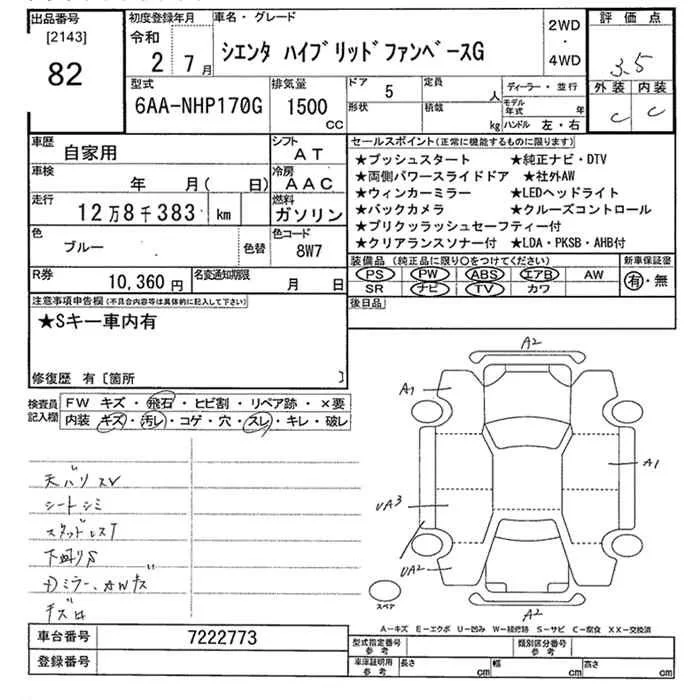 出品番号
[2143]
82
初度登録年月
令和
2 7月
車名・グレード
シエンタ ハイブリッドファンベースG
2WD
・
4WD
評価点
3.5
外装 内装
C C
型式
6AA-NHP170G
排気量
1500
CC
ドア
5
定員
人
形状
積載
kg
ディーラー・並行
モデル年式 年
ハンドル 左・右
車歴
自家用
シフト
AT
車検
年 月( 日)
冷房
AAC
走行
12万8千383 km
燃料
ガソリン
色
ブルー
色替
色コード
8W7
R券
10,360円
名変通知期限
月 日
セールスポイント(正常に機能するものに限ります)
★プッシュスタート ★純正ナビ・DTV
★両側パワースライドドア ★社外AW
★ウィンカーミラー ★LEDヘッドライト
★バックカメラ ★クルーズコントロール
★プリクラッシュセーフティー付
★クリアランスソナー付 ★LDA・PKSB・AHB付
装備品(純正品に限り○をつけてください)
新車保証書
PS PW ABS エアB AW
SR ナビ TV カワ
有・無
後日品
注意事項申告欄(不具合内容等は具体的に記入して下さい)
★Sキー車内有
修復歴 有〔箇所 〕
検査員
記入欄
FW キズ・飛石・ヒビ割・リペア跡・×要
内装 キズ・汚レ・コゲ・穴・スレ・キレ・破レ
シートシミ
スタッドレス
下廻りS
キズ
A2
A1
A1
UA3
UA2
A2
スペア
A―キズ E―エクボ U―凹み W―補修跡 S―サビ C―腐食 XX―交換済
車台番号
7222773
登録番号
型式指定番号
参考
類別区分番号
参考
車庫証明用
参考
長さ cm
幅 cm
高さ cm